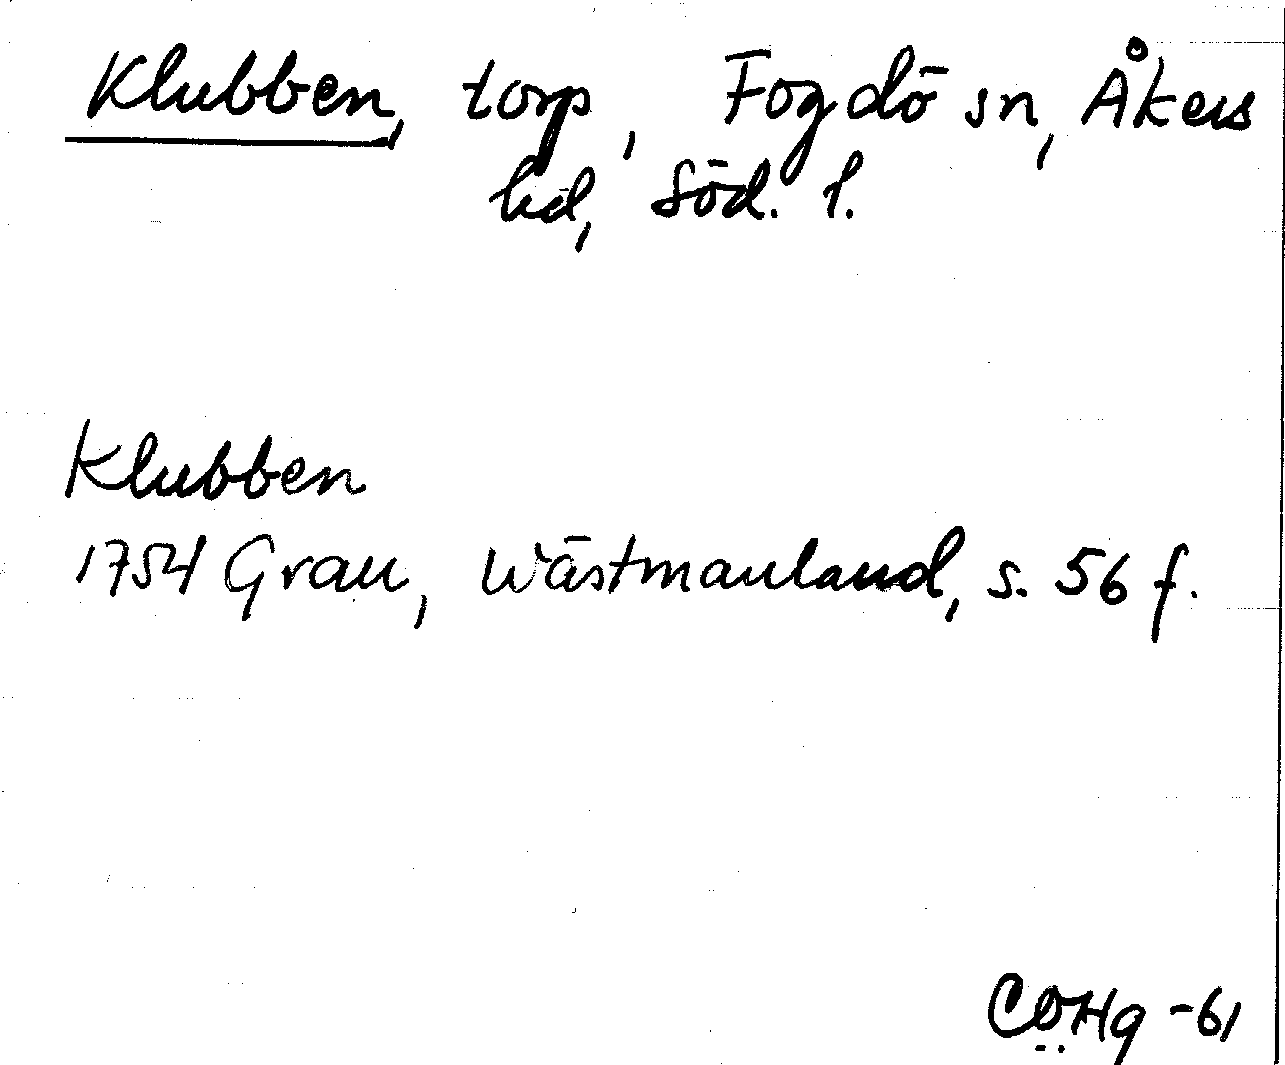 Klubben, torp, Fogdö sn, Åkers
hd, Söd. l.
Klubben
1754 Grau, Wästmanland, s. 56 f.
CÖHg -61